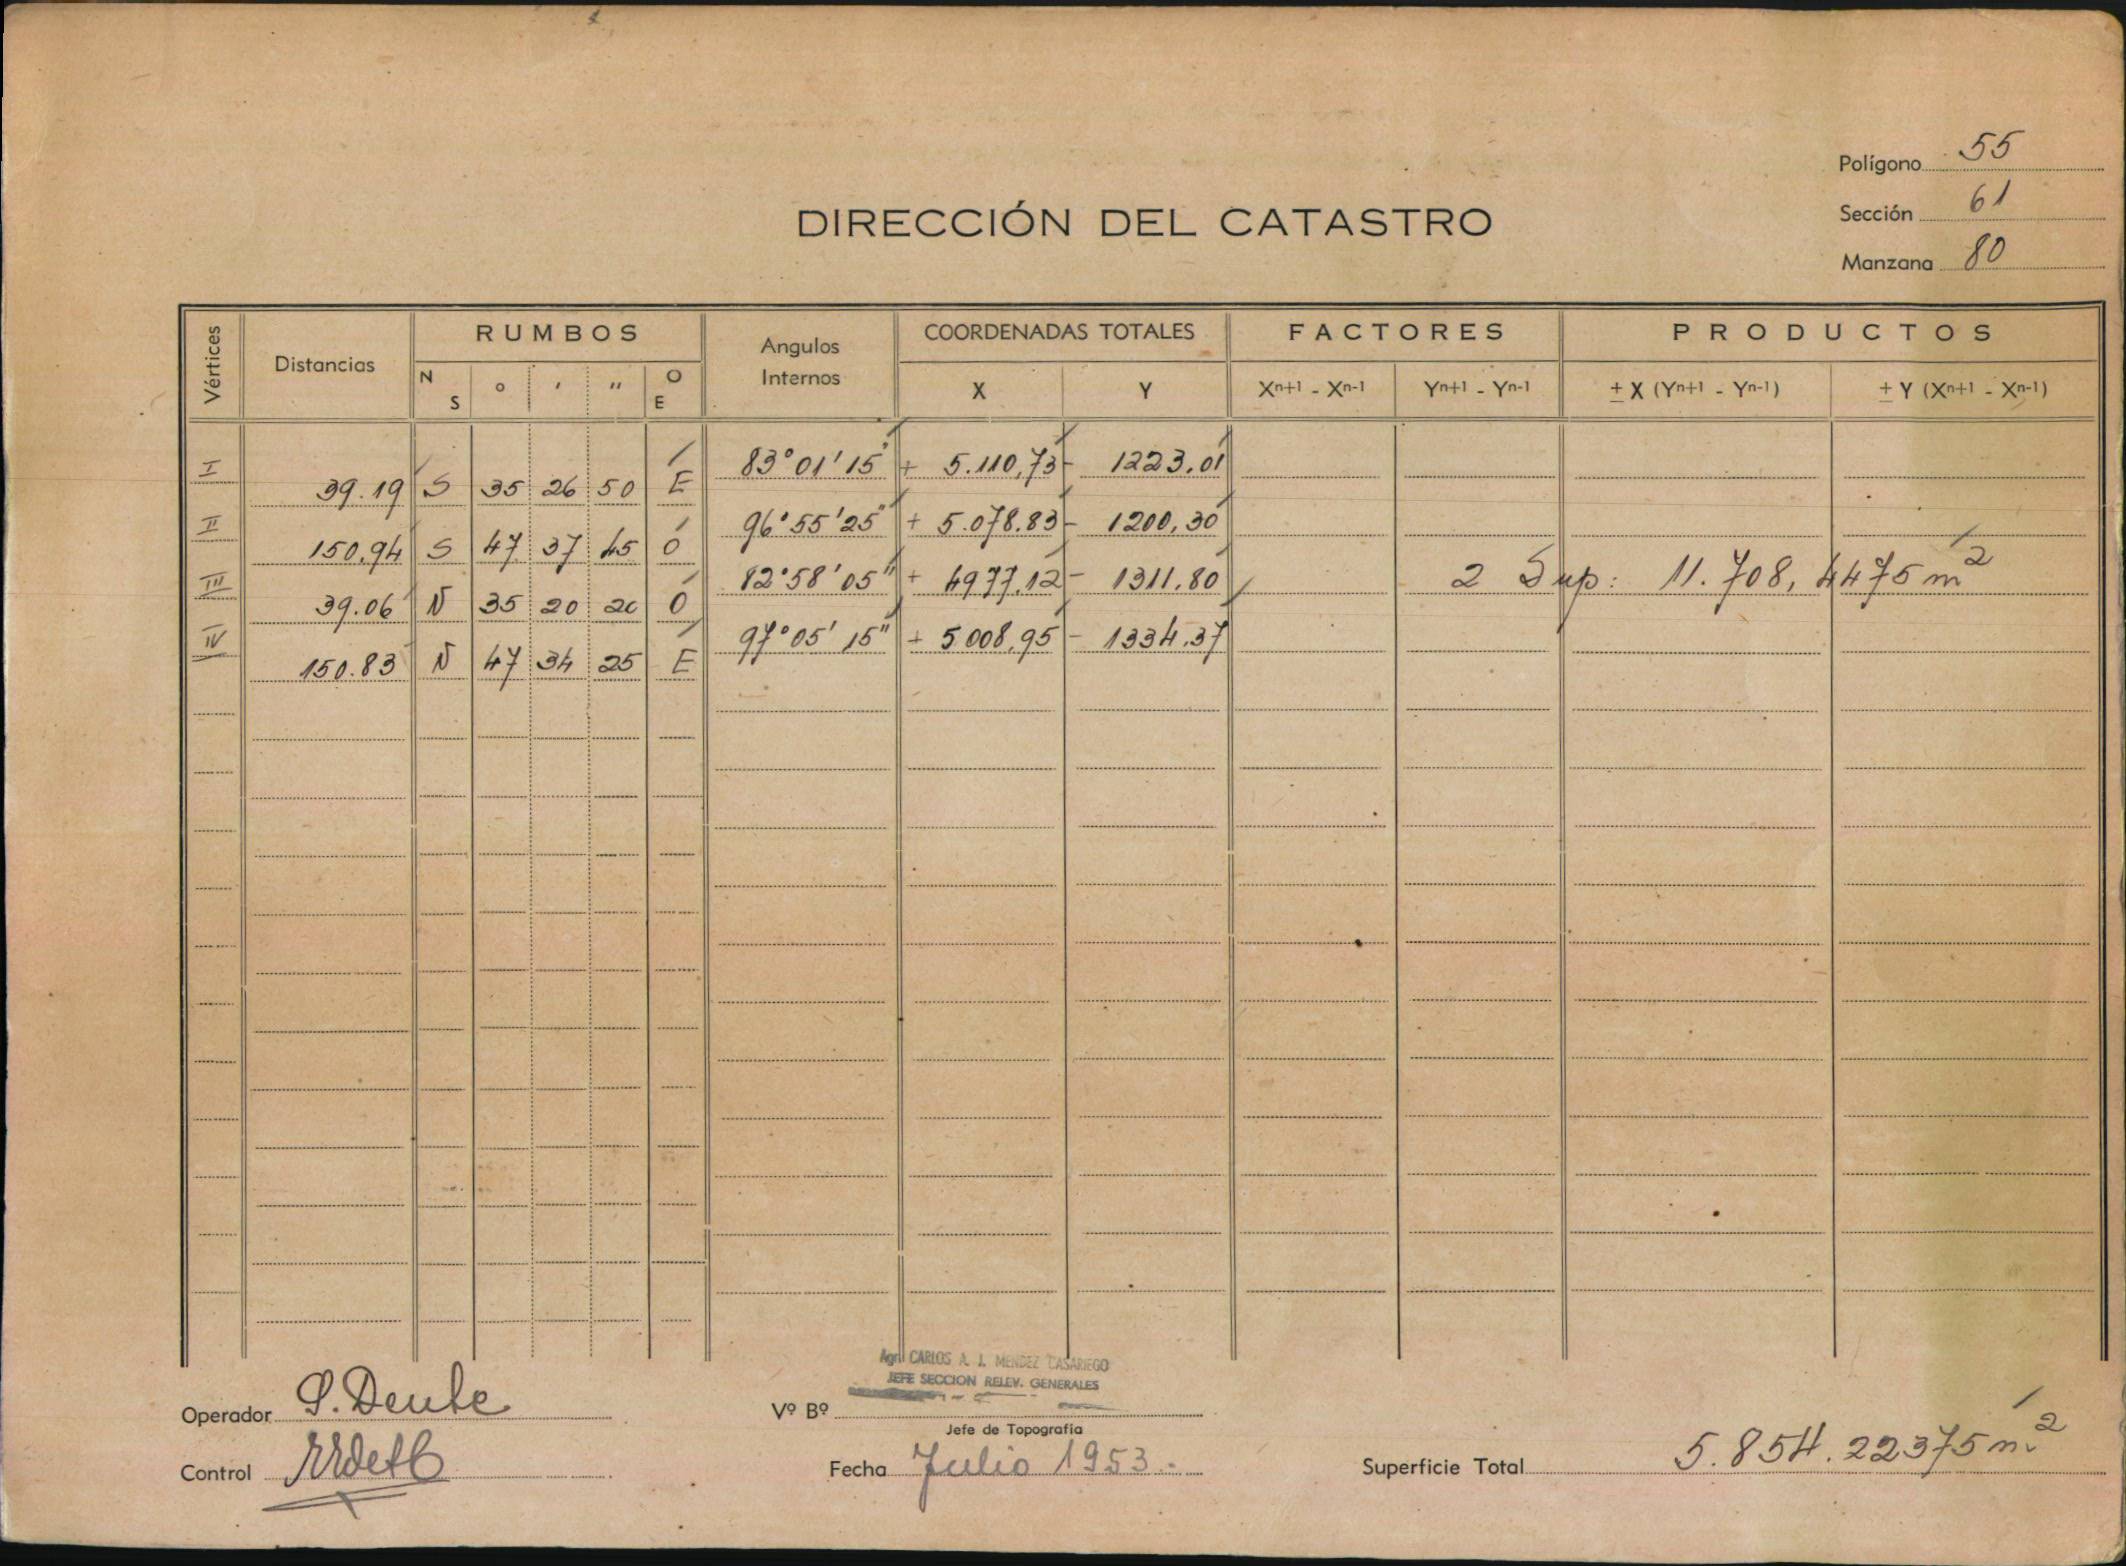 Polígono 55
Sección 61
Manzana 80
DIRECCIÓN DEL CATASTRO
Vértices Distancias RUMBOS Angulos Internos COORDENADAS TOTALES FACTORES PRODUCTOS
N S ° ' " O E X Y Xn+1 - Xn-1 Yn+1 - Yn-1 ± X (Yn+1 - Yn-1) ± Y (Xn+1 - Xn-1)
I 83°01'15" + 5.110,73 - 1223.01
39.19 S 35 26 50 E
II 96°55'25" + 5.078.83 - 1200,30
150.94 S 47 37 45 O
III 82°58'05" + 4977.12 - 1311.80 2 Sup: 11.708,4475 m2
39.06 N 35 20 20 O
IV 97°05'15" + 5008,95 - 1334.37
150.83 N 47 34 25 E
Agr. CARLOS A. J. MENDEZ CASARIEGO
JEFE SECCION RELEV. GENERALES
Operador S. Deube Vº Bº
Jefe de Topografía
Control Fecha Julio 1953. Superficie Total 5.854.22375 m.2